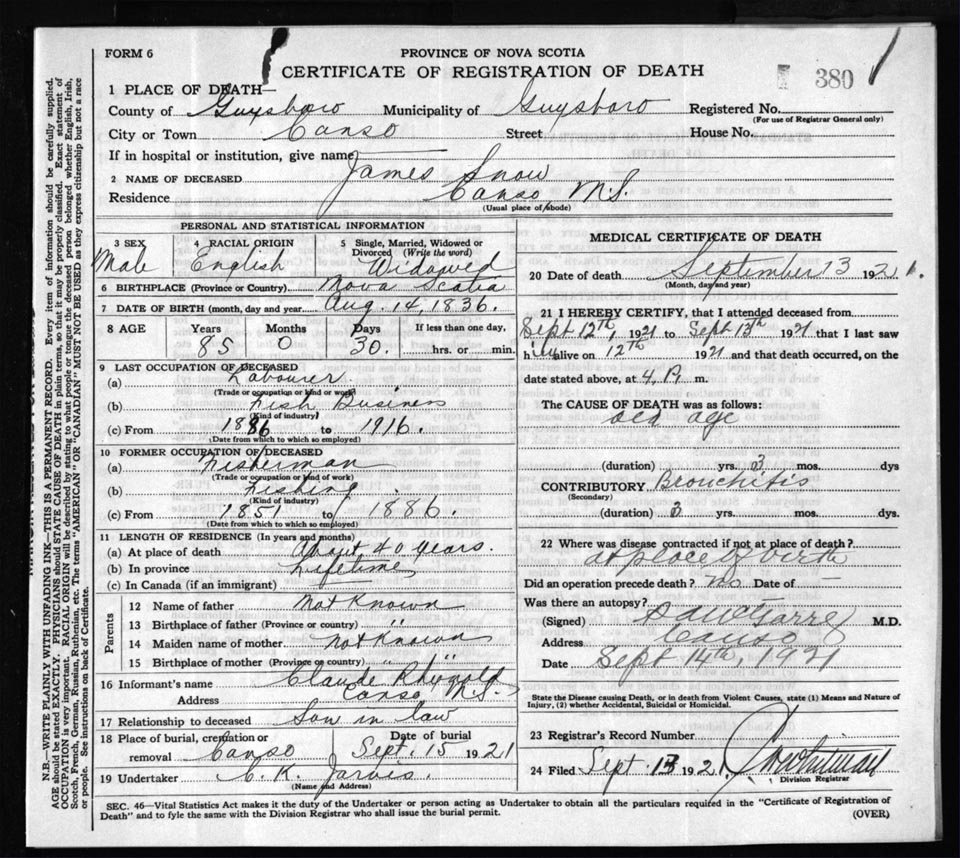 FORM 6
PROVINCE OF NOVA SCOTIA
CERTIFICATE OF REGISTRATION OF DEATH
380
1 PLACE OF DEATH—
County of Guysboro Municipality of Guysboro Registered No.
(For use of Registrar General only)
City or Town Canso Street House No.
If in hospital or institution, give name
2 NAME OF DECEASED James Snow
Residence Canso, N.S.
(Usual place of abode)
PERSONAL AND STATISTICAL INFORMATION
3 SEX Male
4 RACIAL ORIGIN English
5 Single, Married, Widowed or Divorced (Write the word) Widowed
6 BIRTHPLACE (Province or Country) Nova Scotia
7 DATE OF BIRTH (month, day and year) Aug. 14, 1836.
8 AGE Years Months Days If less than one day,
85 0 30. hrs. or min.
9 LAST OCCUPATION OF DECEASED
(a) Labourer.
(Trade or occupation or kind of work)
(b) Fish Business
(Kind of industry)
(c) From 1886 to 1916.
(Date from which to which so employed)
10 FORMER OCCUPATION OF DECEASED
(a) Fisherman
(Trade or occupation or kind of work)
(b) Fishing.
(Kind of industry)
(c) From 1851 to 1886.
(Date from which to which so employed)
11 LENGTH OF RESIDENCE (In years and months)
(a) At place of death About 40 years.
(b) In province Lifetime
(c) In Canada (if an immigrant)
Parents
12 Name of father Not Known
13 Birthplace of father (Province or country) "
14 Maiden name of mother not Known
15 Birthplace of mother (Province or country) " "
16 Informant's name Claude
Address Canso N.S.
17 Relationship to deceased Son in law
18 Place of burial, cremation or removal Canso
Date of burial Sept. 15 1921
19 Undertaker C. K. Jarvis.
(Name and Address)
MEDICAL CERTIFICATE OF DEATH
20 Date of death September 13 1921.
(Month, day and year)
21 I HEREBY CERTIFY, that I attended deceased from
Sept 12th, 1921 to Sept 13th 1921 that I last saw
him alive on 12th 1921 and that death occurred, on the
date stated above, at 4 P. m.
The CAUSE OF DEATH was as follows:
old age
(duration) yrs. 3 mos. dys
CONTRIBUTORY Bronchitis
(Secondary)
(duration) 3 yrs. mos. dys.
22 Where was disease contracted if not at place of death?
at place of birth
Did an operation precede death? no Date of —
Was there an autopsy?
(Signed) M.D.
Address Canso
Date Sept 14th, 1921
State the Disease causing Death, or in death from Violent Causes, state (1) Means and Nature of Injury, (2) whether Accidental, Suicidal or Homicidal.
23 Registrar's Record Number
24 Filed Sept. 13 1921
Division Registrar
SEC. 46—Vital Statistics Act makes it the duty of the Undertaker or person acting as Undertaker to obtain all the particulars required in the "Certificate of Registration of
Death" and to fyle the same with the Division Registrar who shall issue the burial permit.
(OVER)
N.B.—WRITE PLAINLY WITH UNFADING INK—THIS IS A PERMANENT RECORD. Every item of information should be carefully supplied.
AGE should be stated EXACTLY. PHYSICIANS should STATE CAUSE OF DEATH in plain terms, so that it may be properly classified. Exact statement of
OCCUPATION is very important. RACIAL ORIGIN will be described by stating to what people or tongue the deceased person belonged whether English, Irish,
Scotch, French, German, Russian, Ruthenian, etc. The terms "AMERICAN" OR "CANADIAN" MUST NOT BE USED as they express citizenship but not a race
or people. See instructions on back of Certificate.